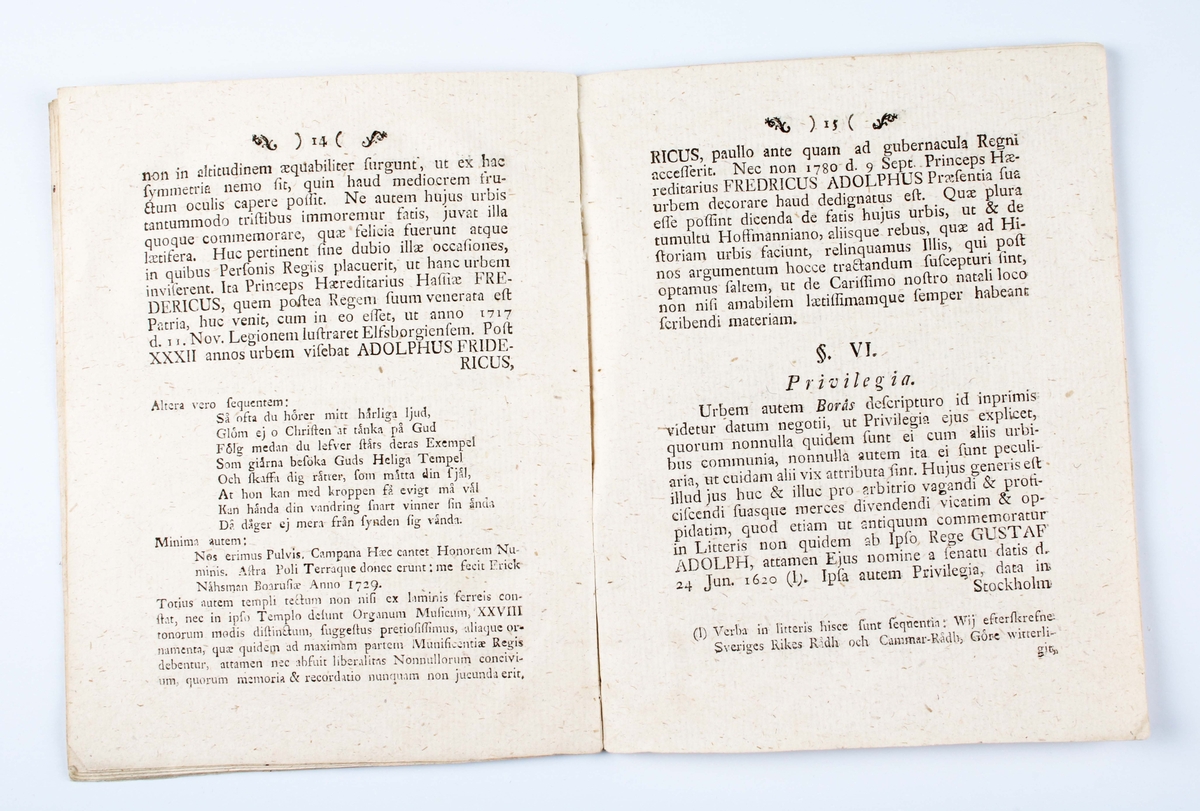 ) 14 (
non in altitudinem æquabiliter ſurgunt, ut ex hac
ſymmetria nemo ſit, quin haud mediocrem fru-
ctum oculis capere poſſit. Ne autem hujus urbis
tantummodo triſtibus immoremur fatis, juvat illa
quoque commemorare, quæ felicia fuerunt atque
lætifera. Huc pertinent ſine dubio illæ occaſiones,
in quibus Perſonis Regiis placuerit, ut hanc urbem
inviſerent. Ita Princeps Hæreditarius Haſſiæ FRE-
DERICUS, quem poſtea Regem ſuum venerata eſt
Patria, huc venit, cum in eo eſſet, ut anno 1717
d. 11. Nov. Legionem luſtraret Elfsborgienſem. Poſt
XXXII annos urbem viſebat ADOLPHUS FRIDE-
RICUS,
Altera vero ſequentem:
Så ofta du hörer mitt hårliga ljud,
Glöm ej o Chriſten at tånka på Gud
Fölg medan du lefver ſtårs deras Exempel
Som giårna beſöka Guds Heliga Tempel
Och ſkaffa dig råtter, ſom måtta din ſjål,
At hon kan med kroppen få evigt må vål
Kan hånda din vandring ſnart vinner ſin ånda
Då dåger ej mera från ſynden ſig vånda.
Minima autem:
Nos erimus Pulvis. Campana Hæc cantet Honorem Nu-
minis. Aſtra Poli Terraque donec erunt: me fecit Erick
Nåhsman Boaruſiæ Anno 1729.
Totius autem templi tectum non niſi ex laminis ferreis con-
ſtat, nec in ipſo Templo deſunt Organum Muſicum, XXVIII
tonorum modis diſtinctum, ſuggeſtus pretioſiſſimus, aliaque or-
namenta, quæ quidem ad maximam partem Munificentiæ Regis
debentur, attamen nec abfuit liberalitas Nonnullorum concivi-
um, quorum memoria & recordatio nunquam non jucunda erit.
) 15 (
RICUS, paullo ante quam ad gubernacula Regni
acceſſerit. Nec non 1780 d. 9 Sept. Princeps Hæ-
reditarius FREDRICUS ADOLPHUS Præſentia ſua
urbem decorare haud dedignatus eſt. Quæ plura
eſſe poſſint dicenda de fatis hujus urbis, ut & de
tumultu Hoffmanniano, aliisque rebus, quæ ad Hi-
ſtoriam urbis faciunt, relinquamus Illis, qui poſt
nos argumentum hocce tractandum ſuſcepturi ſint,
optamus ſaltem, ut de Cariſſimo noſtro natali loco
non niſi amabilem lætiſſimamque ſemper habeant
ſcribendi materiam.
§. VI.
Privilegia.
Urbem autem Borås deſcripturo id inprimis
videtur datum negotii, ut Privilegia ejus explicet,
quorum nonnulla quidem ſunt ei cum aliis urbi-
bus communia, nonnulla autem ita ei ſunt peculi-
aria, ut cuidam alii vix attributa ſint. Hujus generis eſt
illud jus huc & illuc pro arbitrio vagandi & profi-
ciſcendi ſuasque merces divendendi vicatim & op-
pidatim, quod etiam ut antiquum commemoratur
in Litteris non quidem ab Ipſo Rege GUSTAF
ADOLPH, attamen Ejus nomine a ſenatu datis d.
24 Jun. 1620 (l). Ipſa autem Privilegia, data in
Stockholm
(l) Verba in litteris hisce ſunt ſequentia: Wij efterſkrefne
Sveriges Rikes Rådh och Cammar-Rådh, Göre witterli-
git,